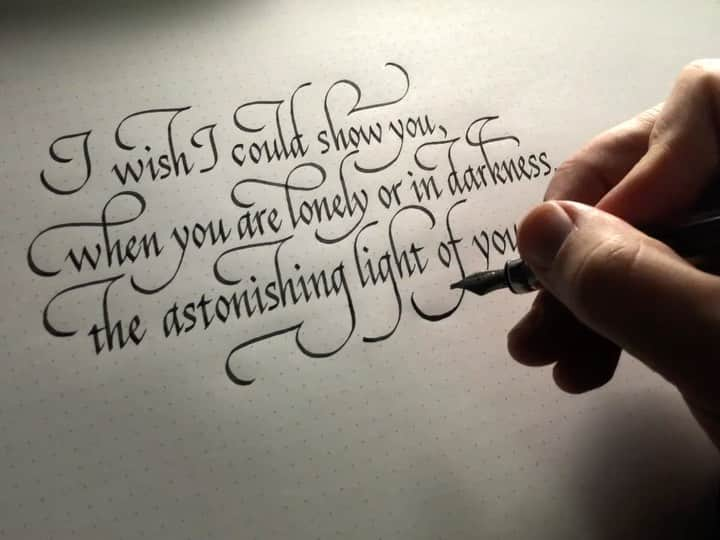 I wish I could show you,
when you are lonely or in darkness
the astonishing light of you